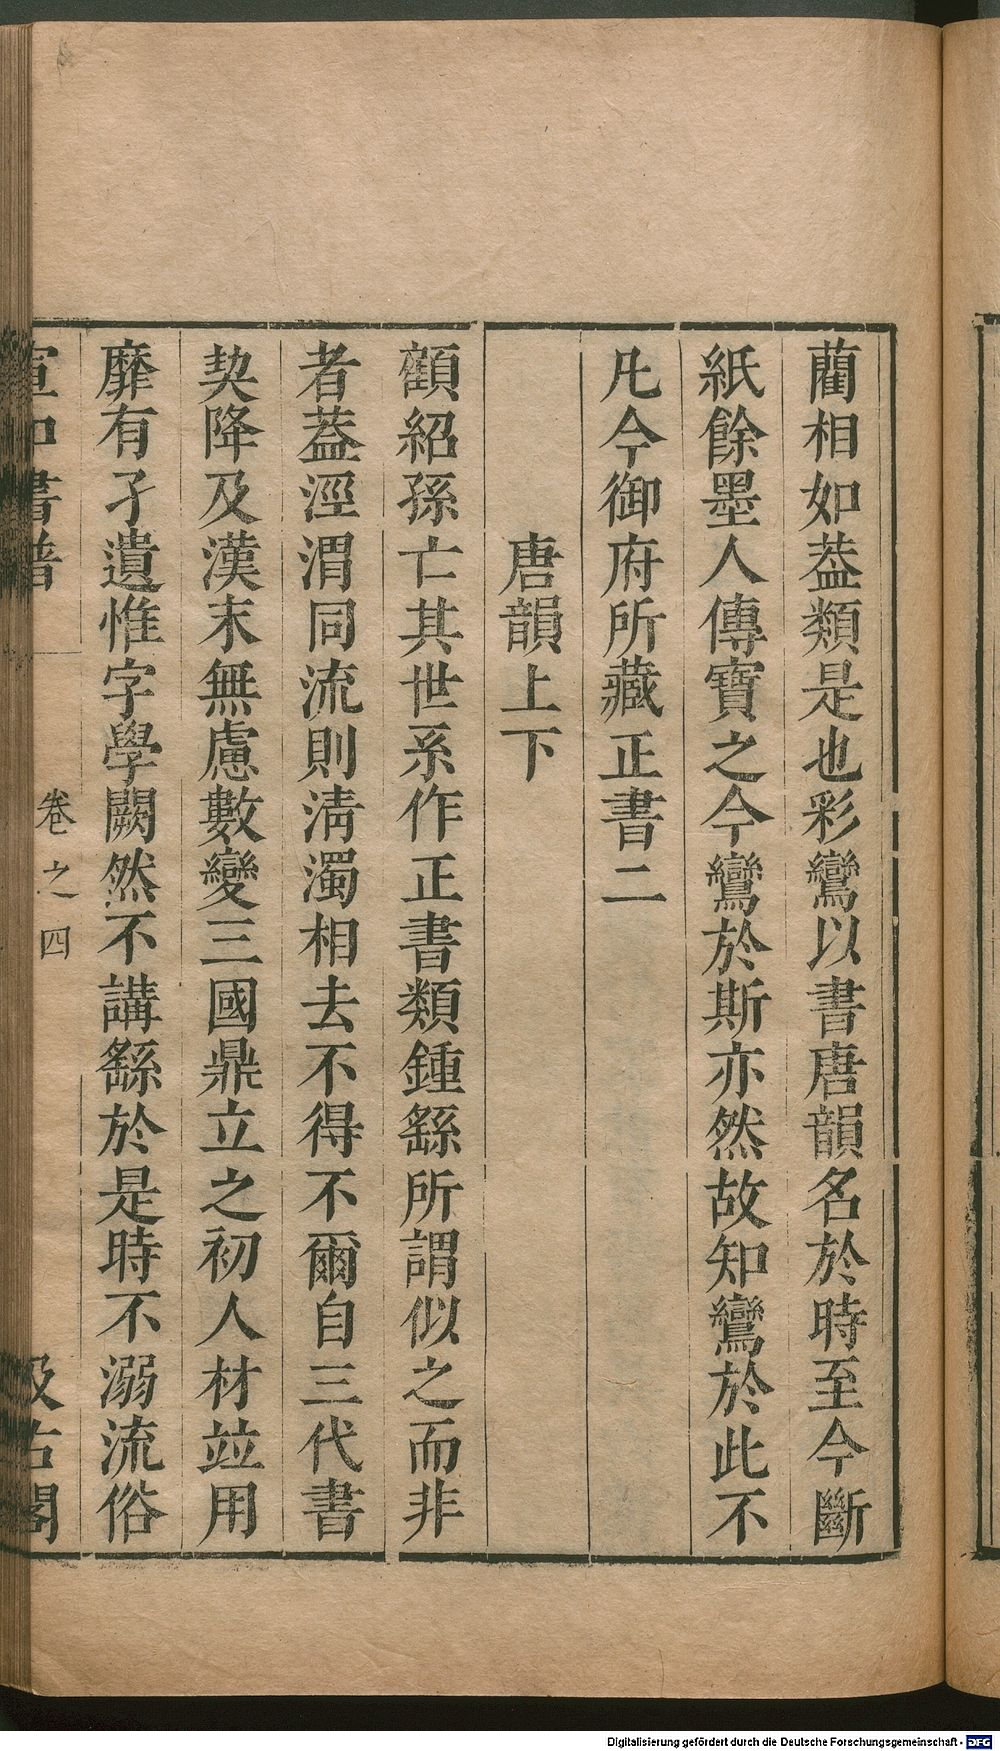 藺相如葢類是也彩鸞以書唐韻名於時至今斷
紙餘墨人傳寶之今鸞於斯亦然故知鸞於此不
凡今御府所藏正書二
唐韻上下
顧紹孫亡其世系作正書類鍾繇所謂似之而非
者葢涇渭同流則清濁相去不得不爾自三代書
契降及漢末無慮數變三國鼎立之初人材竝用
靡有孑遺惟字學闕然不講繇於是時不溺流俗
宣和書譜
卷之四
汲古閣
Digitalisierung gefördert durch die Deutsche Forschungsgemeinschaft - DFG